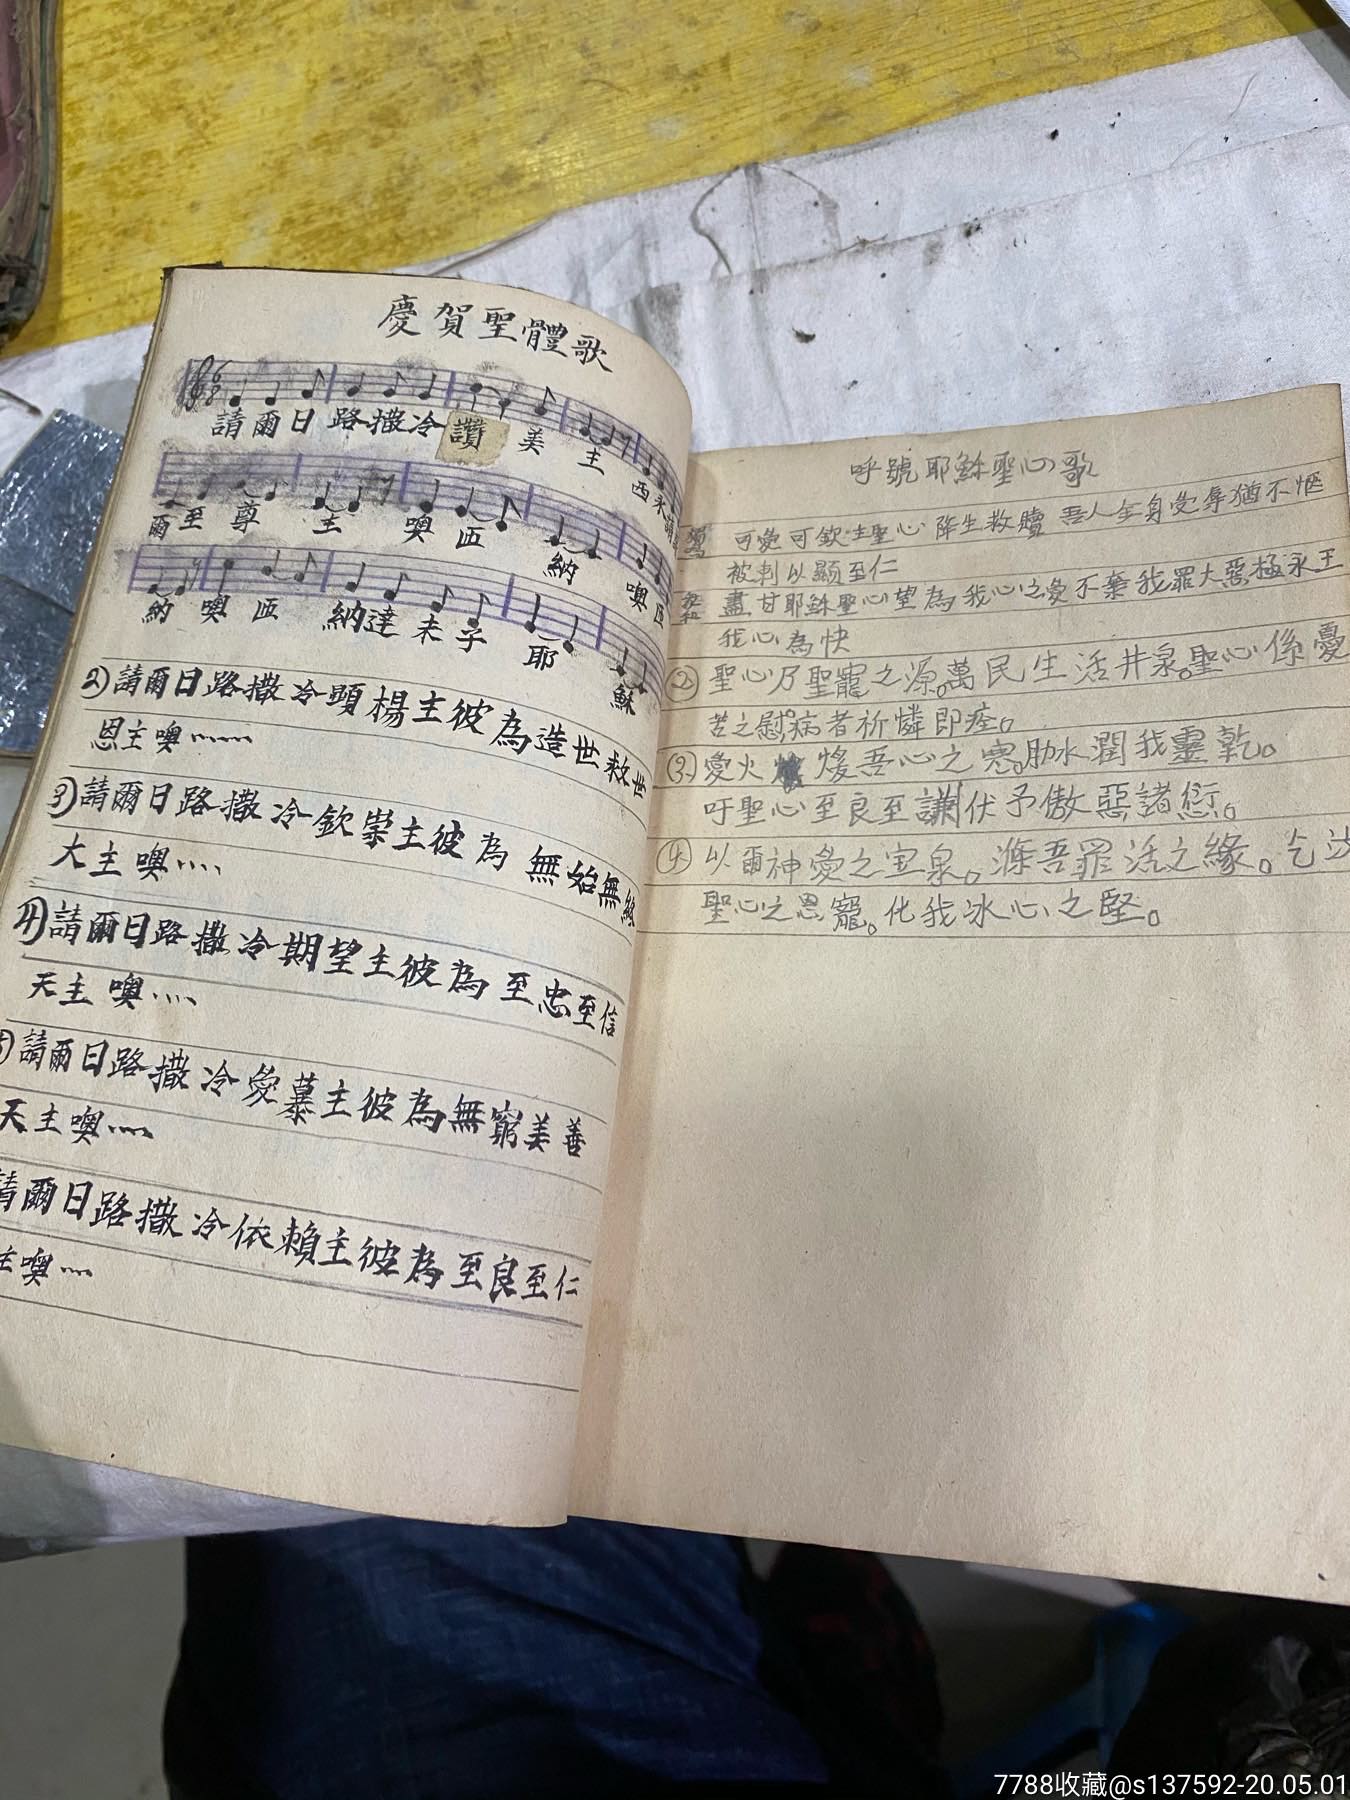 慶賀聖體歌
請爾日路撒冷讚美主西
爾至尊主噢匝納噢匝
納噢匝納達未子耶穌
2)請爾日路撒冷頭楊主彼為造世救世
恩主噢……
3)請爾日路撒冷欽崇主彼為無始無終
大主噢....
4)請爾日路撒冷期望主彼為至忠至信
天主噢....
請爾日路撒冷愛慕主彼為無窮美善
天主噢....
請爾日路撒冷依賴主彼為至良至仁
主噢....
呼號耶穌聖心歌
獨唱 可愛可欽主聖心降生救贖吾人全身受辱猶不愜
被刺以顯至仁
盡甘耶穌聖心望為我心之愛不棄我罪大惡極永王
我心為快
②聖心乃聖寵之源。萬民生活井泉。聖心係憂
苦之慰。病者祈憐即痊。
③愛火煖吾心之寒。肋水潤我靈乾。
吁聖心至良至謙伏予傲惡諸愆。
④以爾神愛之宝泉。滌吾罪活之緣。乞
聖心之恩寵。化我冰心之堅。
7788收藏@s137592-20.05.01